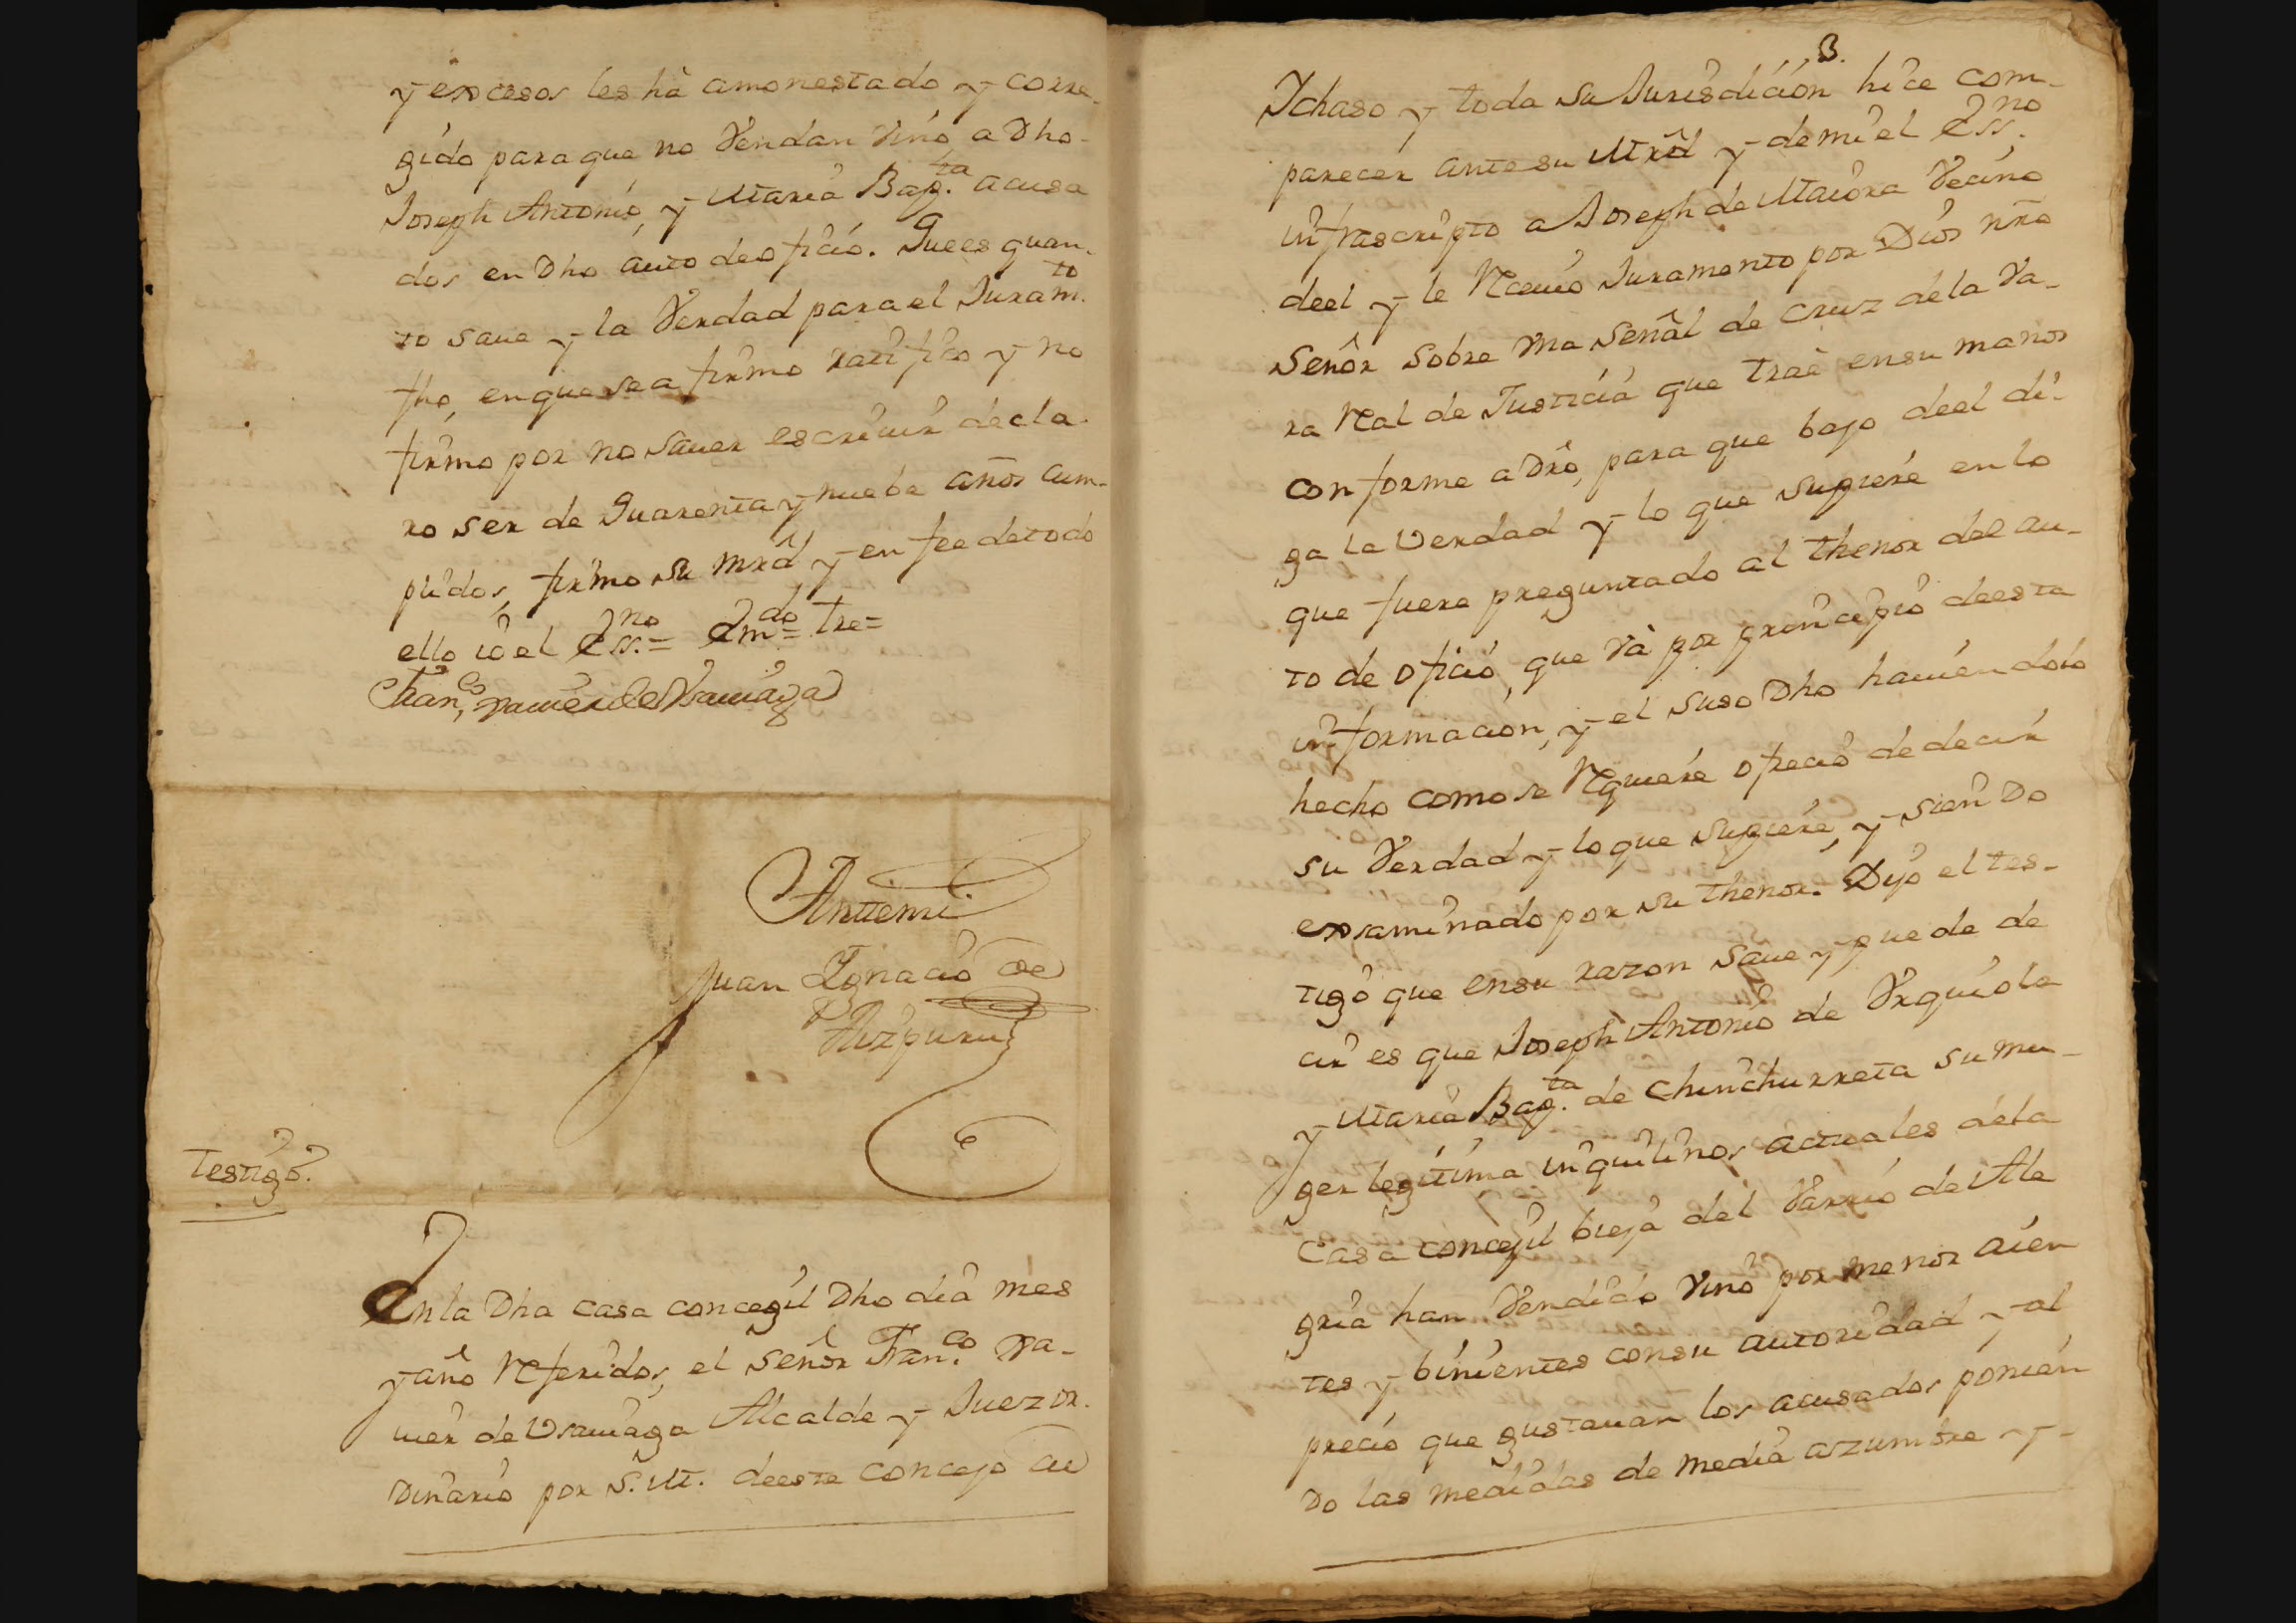 y excesos les há amonestado y corre-
gido para que no Vendan Vino a Dho-
Joseph Antonio, y Maria Bap.ta acusa
dos en Dho auto de oficio. Que es quan-
to saue y la Verdad para el Juram.to
fho, en que se afirmo ratifico y no
firmo por no sauer escriuir decla-
ro ser de Quarenta y nuebe años cum-
plidos, firmo su mrd y en fee de todo
ello io el Ess.no = Em.do = tre =
Fran.co xauier de Vsauiaga
Antemi
Juan Ignacio de
Aizpuru
Testigo.
En la Dha casa concegil Dho dia mes
y año Referidos, el señor Fran.co xa-
uier de Vsauiaga Alcalde y Juez or-
Dinario por S. M. de este concejo de
3.
Ichaso y toda su Jurisdición hice com-
parecer ante su Mrd y de mi el Ess.no
infrascripto a Joseph de Maiora Vecino
de el y le Reciuió Juramento por Dios nro
Señor sobre vna señal de cruz de la Va-
ra Real de Justicia que traê en su manos
conforme a Dro, para que bajo de el di-
ga la Verdad y lo que supiere en lo
que fuere preguntado al thenor del au-
to de oficio, que vá por principio de esta
informacion, y el suso Dho hauiendolo
hecho como se Requiere ofreció de decir
su Verdad y lo que supiere, y sien Do
exsaminado por su thenor. Dijo el tes-
tigo que en su razon saue y puede de
cir es que Joseph Antonio de Vrquiola
y Maria Bap.ta de Chinchurreta su mu-
ger legitima inquilinos actuales de la
Casa concejil bieja del Varrio de Ale
gria han Vendido Vino por menor aien
tes y binientes con su autoridad y al
precio que gustauan los acusados ponién
Do las medidas de media azumbre y-